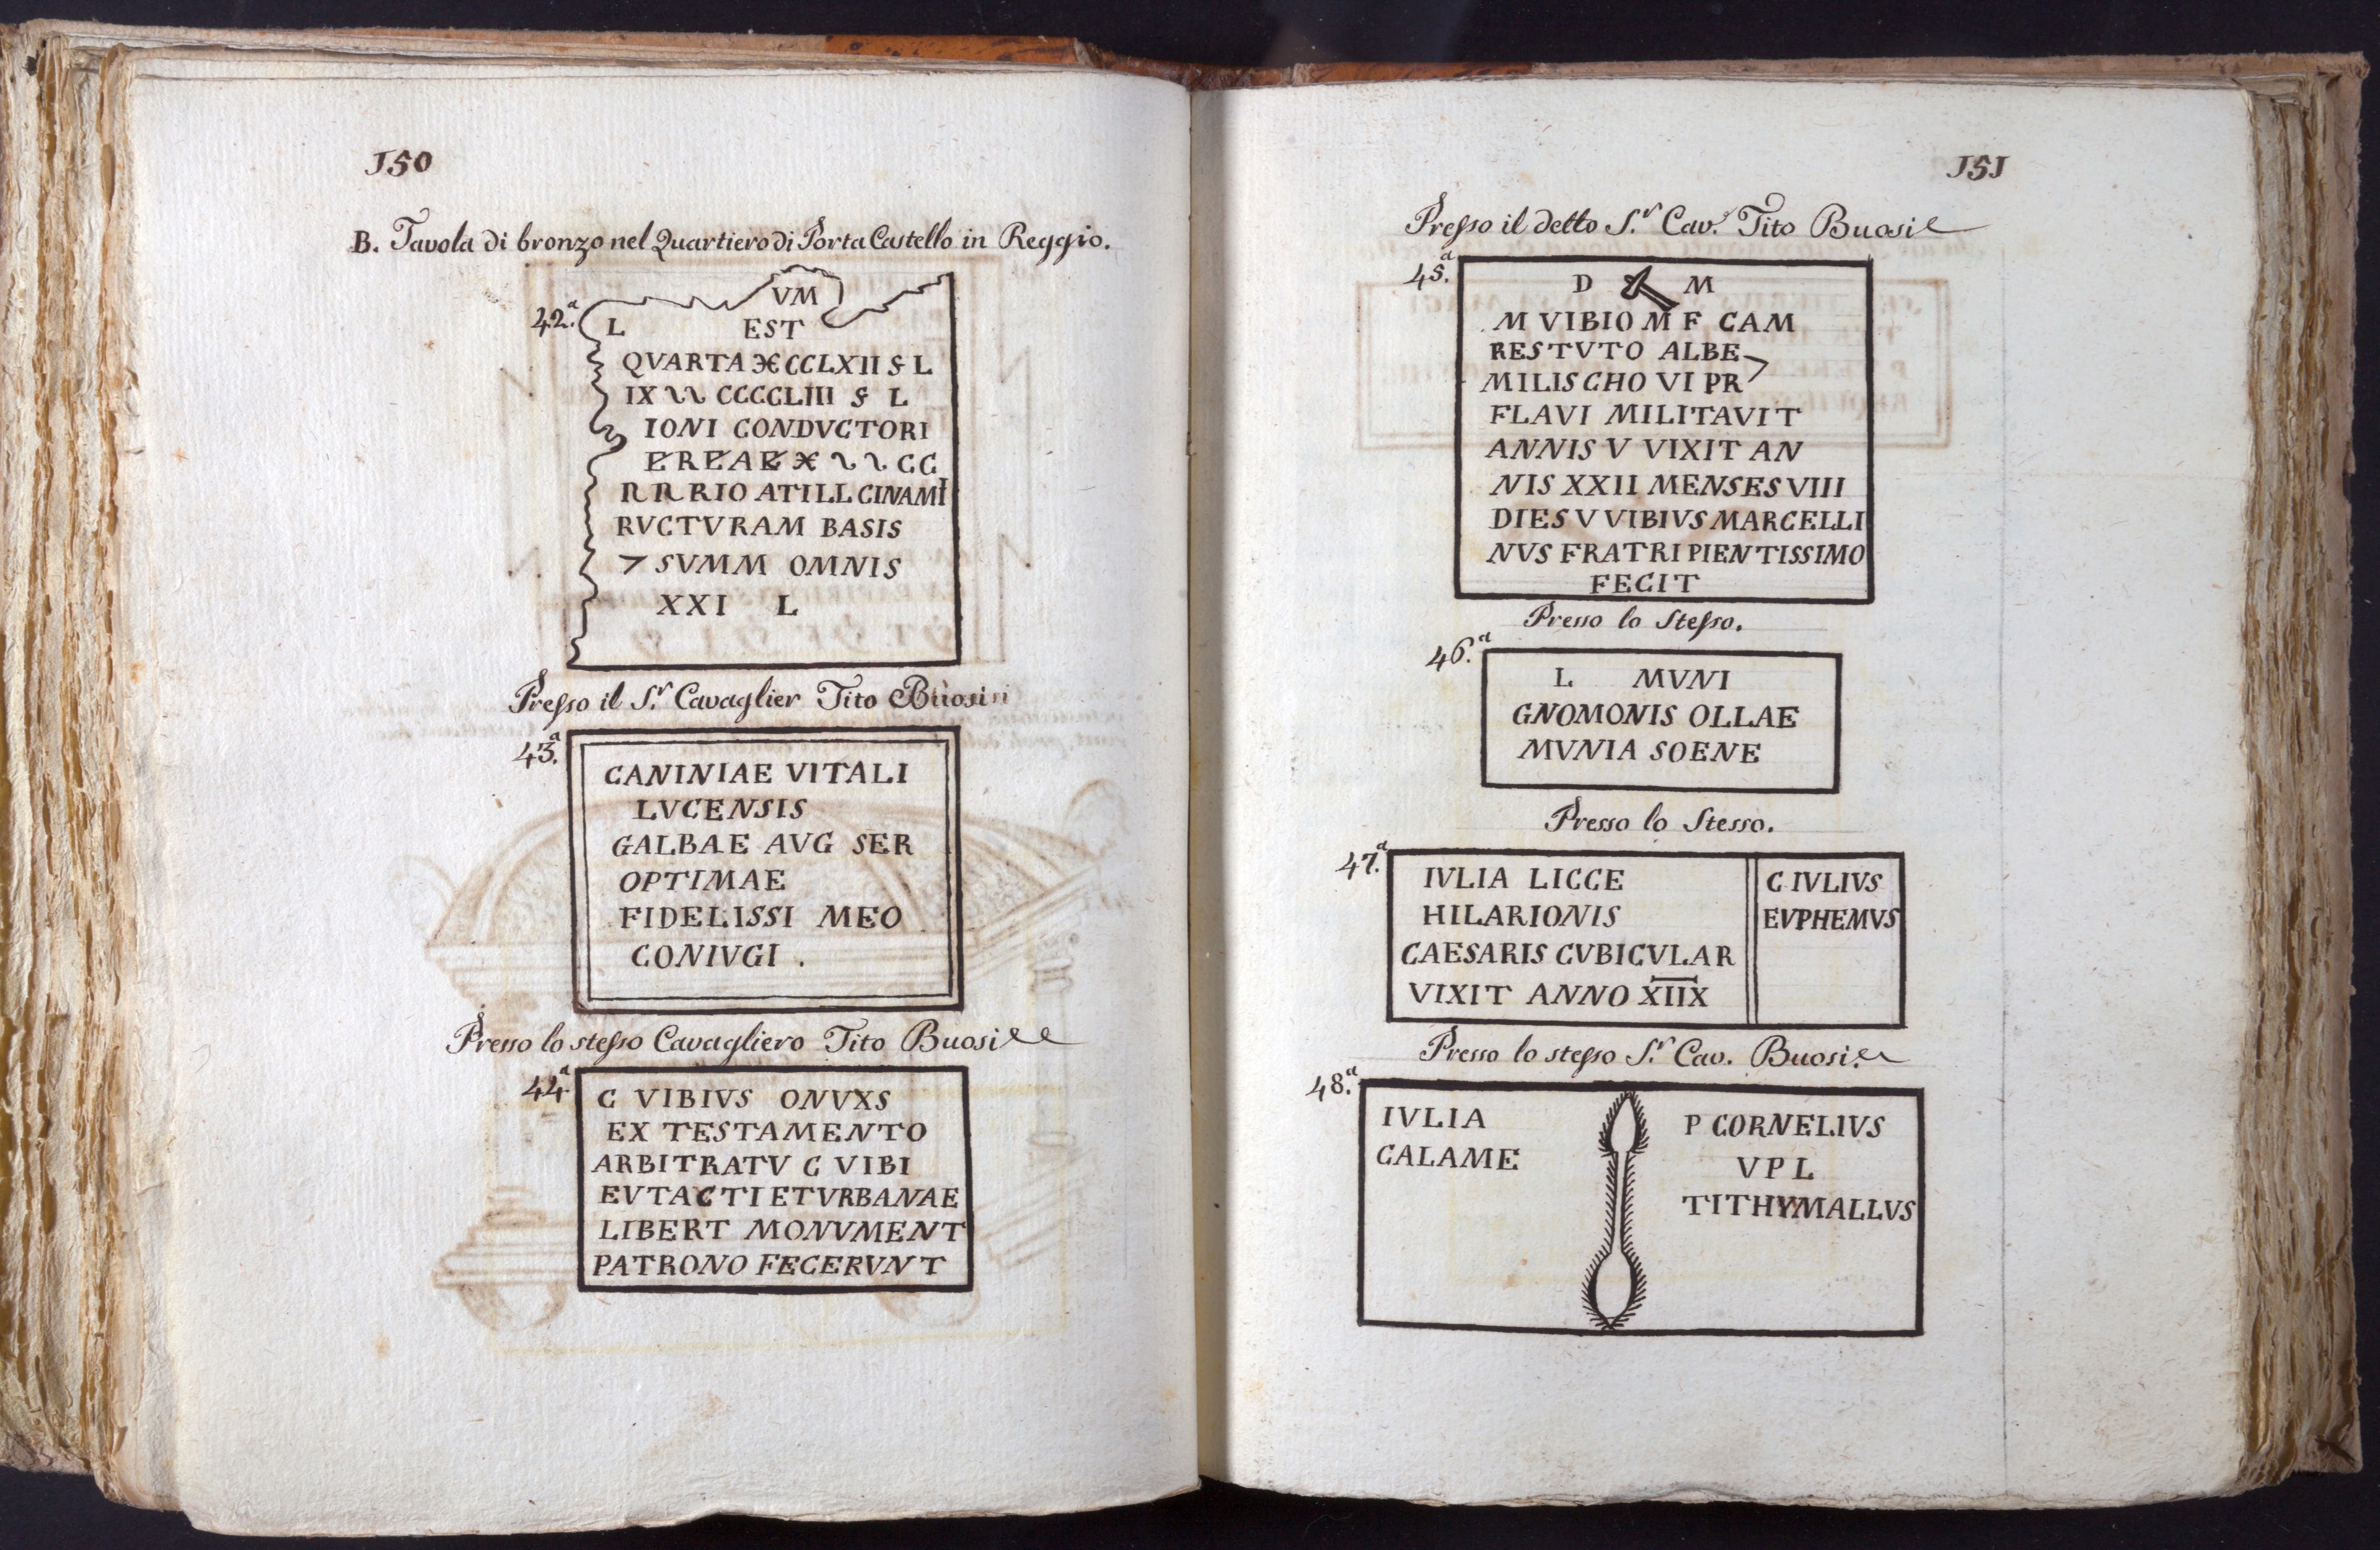 150
B. Tavola di bronzo nel Quartiero di Porta Castello in Reggio.
42.a
VM
L EST
QVARTA CCLXII L
IX CCCCLIII L
IONI CONDVCTORI
EREAE CC
RIO ATILL CINAMI
RVCTVRAM BASIS
> SVMM OMNIS
XXI L
Presso il S.r Cavaglier Tito Buosi
43.a
CANINIAE VITALI
LVCENSIS
GALBAE AVG SER
OPTIMAE
FIDELISSI MEO
CONIVGI .
Presso lo stesso Cavagliero Tito Buosi
44.a
C VIBIVS ONVXS
EX TESTAMENTO
ARBITRATV C VIBI
EVTACTI ET VRBANAE
LIBERT MONVMENT
PATRONO FECERVNT
151
Presso il detto S.r Cav.r Tito Buosi
45.a
D M
M VIBIO M F CAM
RESTVTO ALBE
MILIS CHO VI PR >
FLAVI MILITAVIT
ANNIS V VIXIT AN
NIS XXII MENSES VIII
DIES V VIBIVS MARCELLI
NVS FRATRI PIENTISSIMO
FECIT
Presso lo Stesso.
46.a
L MVNI
GNOMONIS OLLAE
MVNIA SOENE
Presso lo Stesso.
47.a
IVLIA LICCE
HILARIONIS
CAESARIS CVBICVLAR
VIXIT ANNO XIIX
C IVLIVS
EVPHEMVS
Presso lo stesso S.r Cav. Buosi.
48.a
IVLIA
CALAME
P CORNELIVS
V P L
TITHYMALLVS